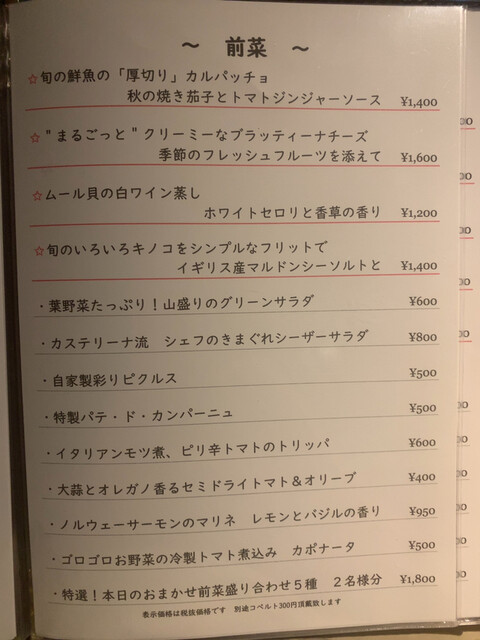 ～ 前菜 ～
☆旬の鮮魚の「厚切り」カルパッチョ
秋の焼き茄子とトマトジンジャーソース ¥1,400
☆"まるごっと"クリーミーなブラッティーナチーズ
季節のフレッシュフルーツを添えて ¥1,600
☆ムール貝の白ワイン蒸し
ホワイトセロリと香草の香り ¥1,200
☆旬のいろいろキノコをシンプルなフリットで
イギリス産マルドンシーソルトと ¥1,400
・葉野菜たっぷり！山盛りのグリーンサラダ ¥600
・カステリーナ流 シェフのきまぐれシーザーサラダ ¥800
・自家製彩りピクルス ¥500
・特製パテ・ド・カンパーニュ ¥500
・イタリアンモツ煮、ピリ辛トマトのトリッパ ¥600
・大蒜とオレガノ香るセミドライトマト＆オリーブ ¥400
・ノルウェーサーモンのマリネ レモンとバジルの香り ¥950
・ゴロゴロお野菜の冷製トマト煮込み カポナータ ¥500
・特選！本日のおまかせ前菜盛り合わせ５種 ２名様分 ¥1,800
表示価格は税抜価格です 別途コペルト300円頂戴致します